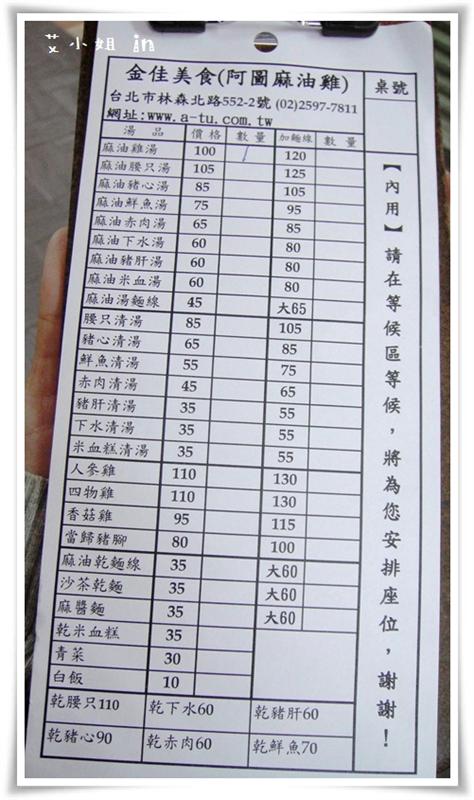 艾小姐 in
金佳美食(阿圖麻油雞)
台北市林森北路552-2號 (02)2597-7811
網址:www.a-tu.com.tw
桌號
湯 品 價格 數量 加麵線 數量
麻油雞湯 100 / 120
麻油腰只湯 105 125
麻油豬心湯 85 105
麻油鮮魚湯 75 95
麻油赤肉湯 65 85
麻油下水湯 60 80
麻油豬肝湯 60 80
麻油米血湯 60 80
麻油湯麵線 45 大65
腰只清湯 85 105
豬心清湯 65 85
鮮魚清湯 55 75
赤肉清湯 45 65
豬肝清湯 35 55
下水清湯 35 55
米血糕清湯 35 55
人參雞 110 130
四物雞 110 130
香菇雞 95 115
當歸豬腳 80 100
麻油乾麵線 35 大60
沙茶乾麵 35 大60
麻醬麵 35 大60
乾米血糕 35
青菜 30
白飯 10
乾腰只110 乾下水60 乾豬肝60
乾豬心90 乾赤肉60 乾鮮魚70
【內用】請在等候區等候，將為您安排座位，謝謝！